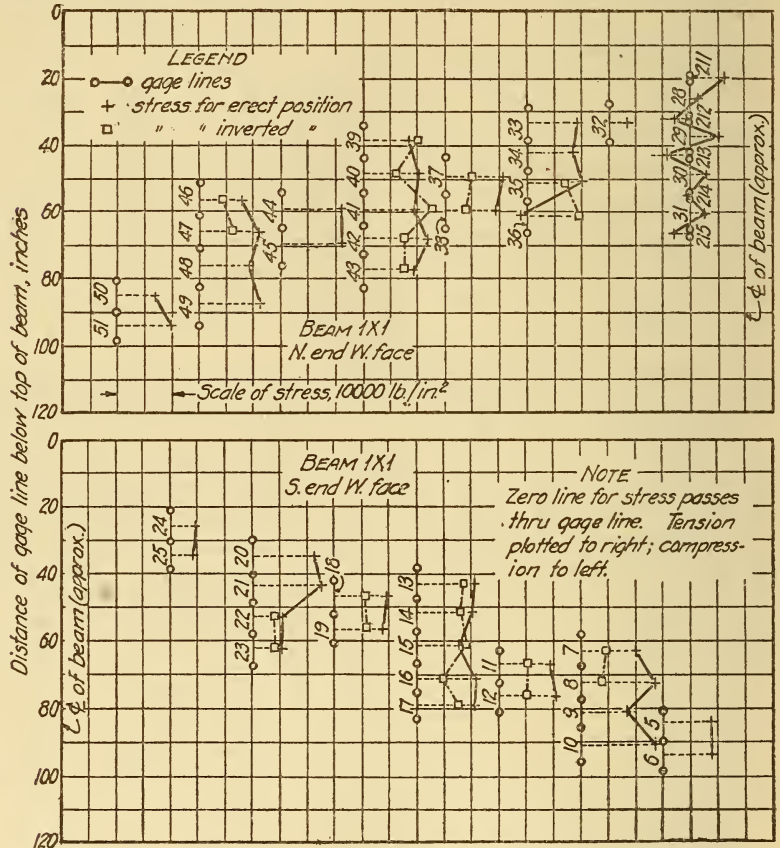 Distance of gage line below top of beam, inches
0
20
40
60
80
100
120
LEGEND
gage lines
stress for erect position
" " inverted "
50
51
46
47
48
49
44
45
39
40
41
42
43
37
38
33
34
35
36
32
28
29
30
31
211
212
213
214
215
℄ of beam (approx.)
BEAM 1X1
N. end W. face
Scale of stress, 10000 lb./in.²
0
20
40
60
80
100
120
BEAM 1X1
S. end W. face
NOTE
Zero line for stress passes
thru gage line. Tension
plotted to right; compress-
ion to left.
℄ of beam (approx.)
24
25
20
21
22
23
18
19
13
14
15
16
17
11
12
7
8
9
10
5
6